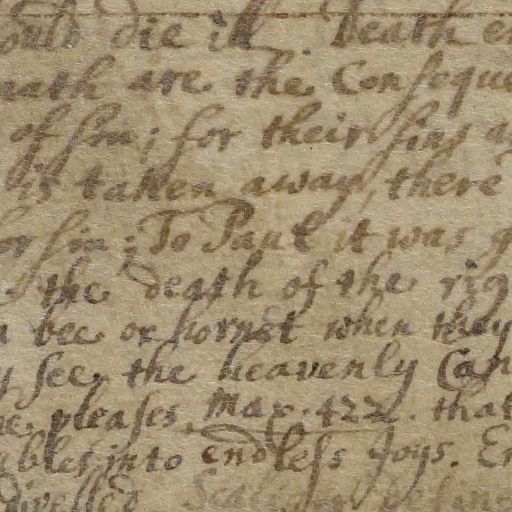 ould die ill. Death
nath are the Conseque
of sin; for their sins a
is taken away, there
for sin; To Paul it was g
the death of the rig
a bee or hornet when they
y see the heavenly Can
he pleases, Max. 422. that
ubles into endless Joys. En
divelled